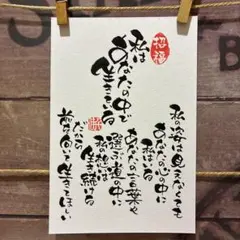 招福
私は
あなたの中で
生きている
私の姿は見えなくても
あなたの心の中に
私はいる
あなたの言葉や
選ぶ道の中に
生き続ける
だから
前を向いて生きてほしい